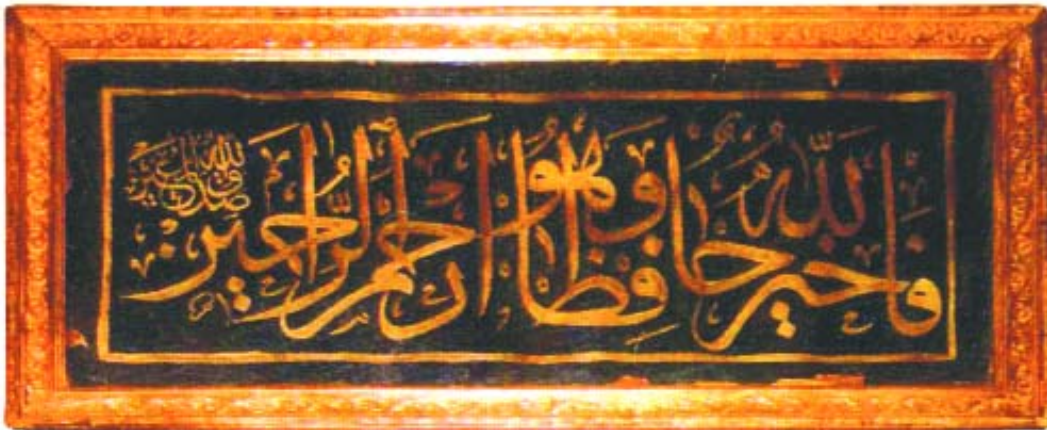 فَاللَّهُ خَيْرٌ حَافِظًا وَهُوَ أَرْحَمُ الرَّاحِمِينَ
صدق الله العظيم